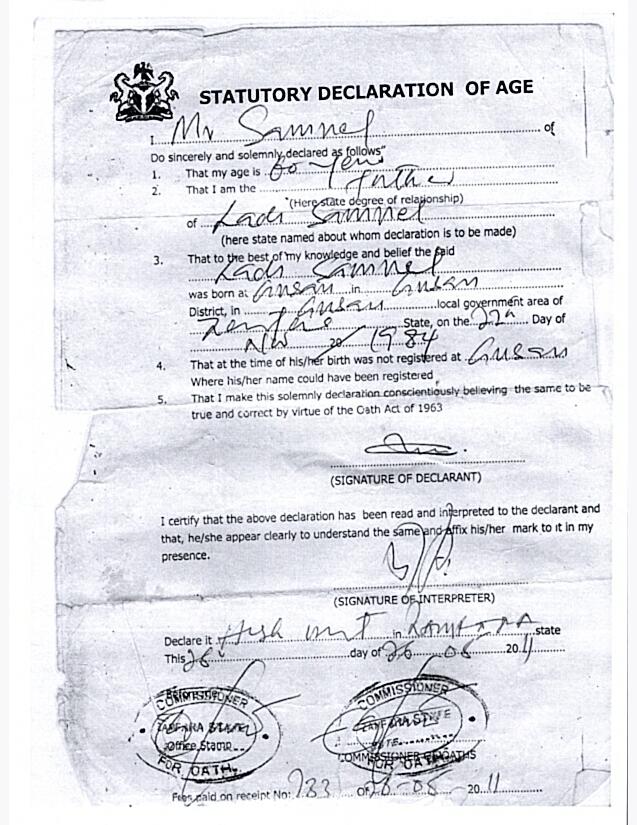 STATUTORY DECLARATION OF AGE
I Mr Samuel of
Do sincerely and solemnly declared as follows"
1. That my age is 60 Years
2. That I am the father
(Here state degree of relationship)
of Ladi Samuel
(here state named about whom declaration is to be made)
3. That to the best of my knowledge and belief the said
Ladi Samuel
was born at Gusau in Gusau
District, in Gusau local government area of
State, on the 22nd Day of
20 1984
4. That at the time of his/her birth was not registered at Gusau
Where his/her name could have been registered
5. That I make this solemnly declaration conscientiously believing the same to be
true and correct by virtue of the Oath Act of 1963
(SIGNATURE OF DECLARANT)
I certify that the above declaration has been read and interpreted to the declarant and
that, he/she appear clearly to understand the same and affix his/her mark to it in my
presence.
(SIGNATURE OF INTERPRETER)
Declare it High court in ZAMFARA state
This 26 day of 26 - 08 2011
COMMISSIONER
ZAMFARA STATE
Office Stamp
FOR OATH
COMMISSIONER
ZAMFARA STATE
DATE
COMMISSIONER OF OATHS
FOR OATH
Fees paid on receipt No: 783 of 26-08- 2011